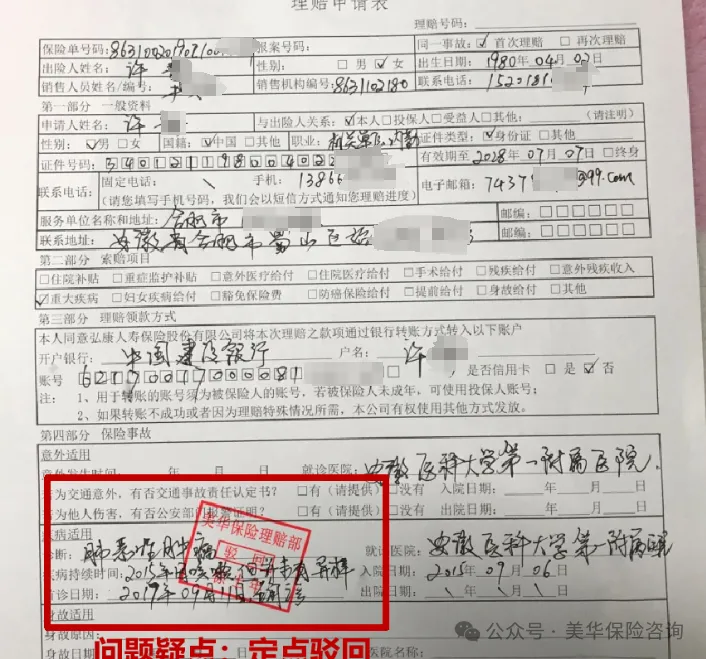 理赔申请表
理赔号码:
保险单号码: 863100201907100 报案号码: 同一事故: ☑首次理赔 □再次理赔
出险人姓名: 许 性别: □男 ☑女 出生日期: 1980年04月02日
销售人员姓名/编号: 销售机构编号: 8631102180 联系电话:
第一部分 一般资料
申请人姓名: 许 与出险人关系: ☑本人□投保人□受益人□其他: (请注明)
性别: ☑男 □女 国籍: ☑中国 □其他 职业: 机关单位内勤 证件类型: ☑身份证 □其他
证件号码: 340121198004022 有效期至2028年07月07日□终身
联系电话: 固定电话: \ 手机: 13866 电子邮箱: 7437 @99.com
(请您填写手机号码,我们会以短信方式通知您理赔进度)
服务单位名称和地址: 合肥市 邮编: □□□□□□
联系地址: 安徽省合肥市蜀山区 邮编: □□□□□□
第二部分 索赔项目
□住院补贴 □重症监护补贴 □意外医疗给付 □住院医疗给付 □手术给付 □残疾给付 □意外残疾收入
☑重大疾病 □妇女疾病给付 □豁免保险费 □防癌保险给付 □提前给付 □身故给付 □其他
第三部分 理赔领款方式
本人同意弘康人寿保险股份有限公司将本次理赔之款项通过银行转账方式转入以下账户
开户银行: 中国建设银行 户名: 许
账号 621700170000081 是否信用卡 □是 ☑否
注: 1、用于转账的账号须为被保险人的账号,若被保险人未成年,可使用投保人账号;
2、如果转账不成功或者因为理赔特殊情况所需,本公司有权使用其他方式发放。
第四部分 保险事故
意外适用
意外发生时间: 年 月 日 就诊医院: 安徽医科大学第一附属医院
若为交通意外,有否交通事故责任认定书? □有(请提供)□没有 入院日期: 年 月 日
若为他人伤害,有否公安部门报案证明? □有(请提供)□没有 出院日期: 年 月 日
美华保险理赔部
驳回
疾病适用
诊断: 肺恶性肿瘤 就诊医院: 安徽医科大学第一附属医院
疾病持续时间: 2015年 入院日期: 2015年09月06日
首诊日期: 2019年09月11日确诊 出院日期: \年\月\日
身故适用
身故原因:
医院名称:
问题疑点:定点驳回
公众号·美华保险咨询